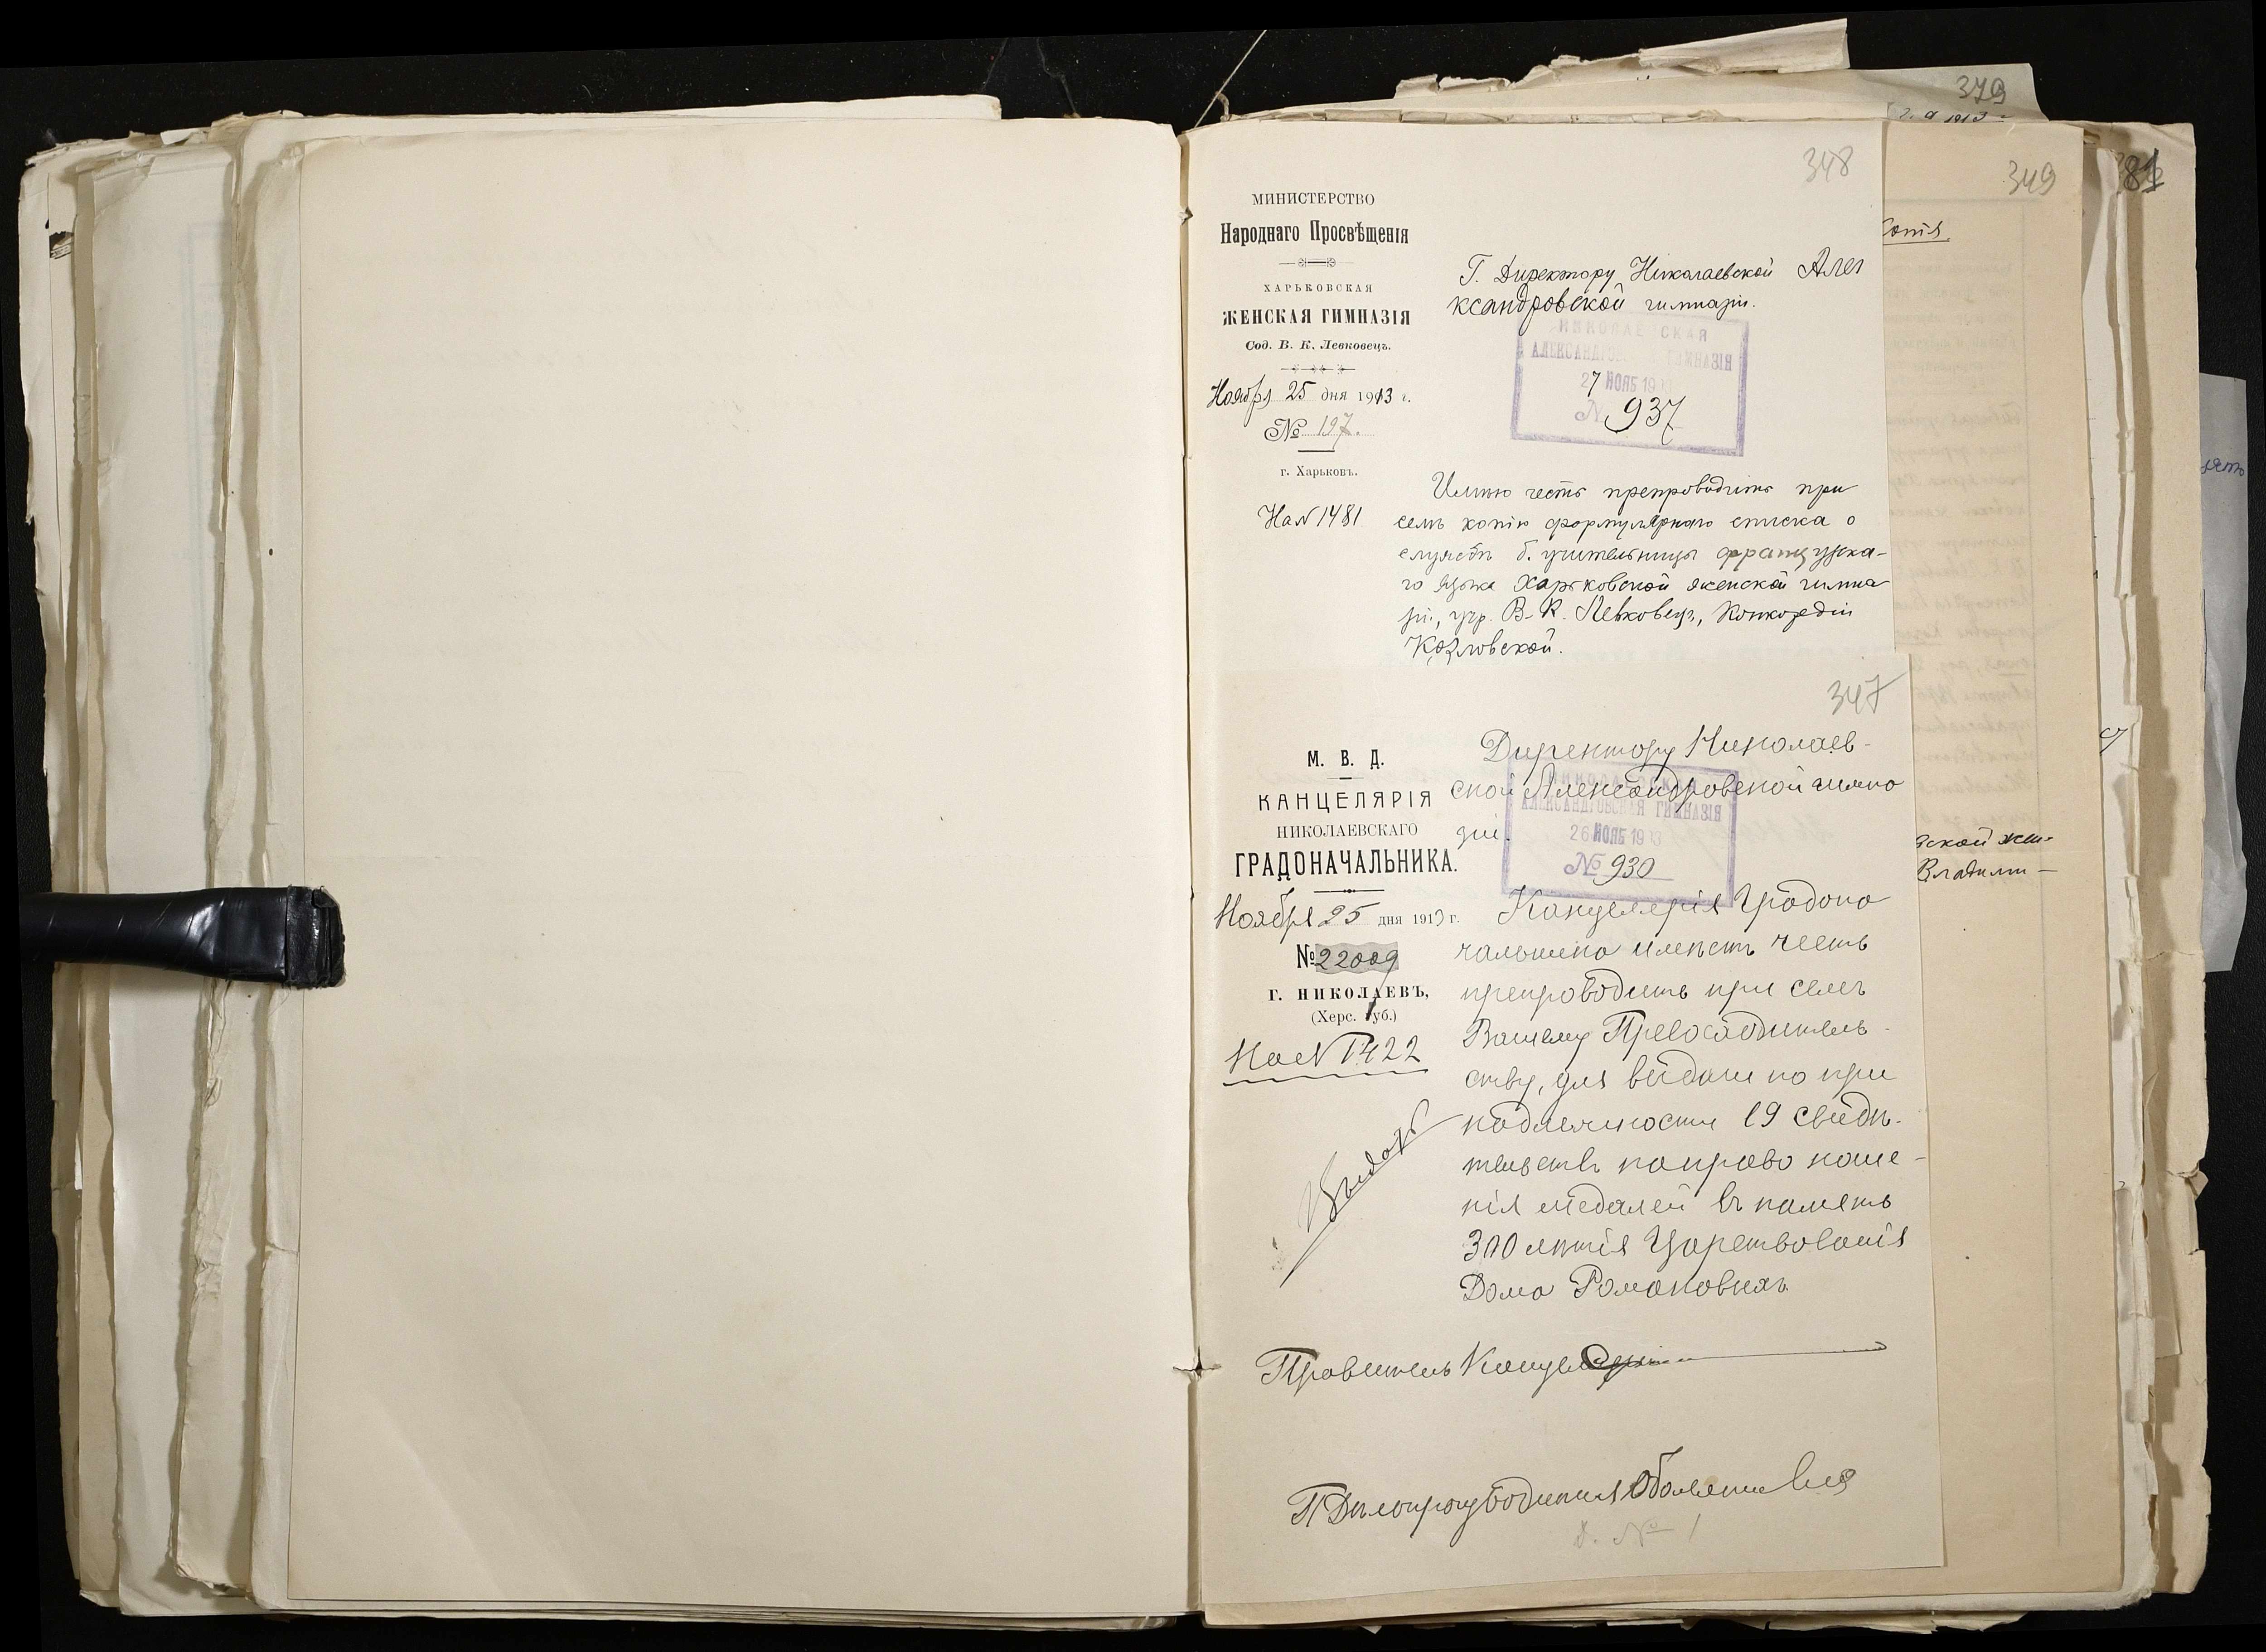 379
348
349
МИНИСТЕРСТВО
Народнаго Просвѣщенія
ХАРЬКОВСКАЯ
ЖЕНСКАЯ ГИМНАЗІЯ
Сод. В. К. Левковецъ.
Ноября 25 дня 1913 г.
№ 197.
г. Харьковъ.
На № 1481
Г. Директору Николаевской Але
ксандровской гимназіи.
НИКОЛАЕВСКАЯ
АЛЕКСАНДРОВСКАЯ ГИМНАЗІЯ
27 НОЯБ 1913
№ 937
Имѣю честь препроводить при
семъ копію формулярнаго списка о
службѣ б. учительницы французска-
го языка Харьковской женской гимна
зіи, учр. В. К. Левковецъ, Конкордіи
Козловской.
347
М. В. Д.
КАНЦЕЛЯРІЯ
НИКОЛАЕВСКАГО
ГРАДОНАЧАЛЬНИКА.
Ноября 25 дня 1913 г.
№ 22009
г. НИКОЛАЕВЪ,
(Херс. Губ.)
На № 1422
Директору Николаев-
ской Александровской гимна
зіи.
НИКОЛАЕВСКАЯ
АЛЕКСАНДРОВСКАЯ ГИМНАЗІЯ
26 НОЯБ 1913
№ 930
Канцелярія Градона
чальника имѣетъ честь
препроводить при семъ
Вашему Превосходитель-
ству, для выдачи по при
надлежности 19 свидѣ-
тельствъ на право ноше-
нія медалей въ память
300 лѣтія Царствованія
Дома Романовыхъ.
Правитель Канцеляріи
Дѣлопроизводителя
Д. № 1
Копія.
ской жен-
Владими-